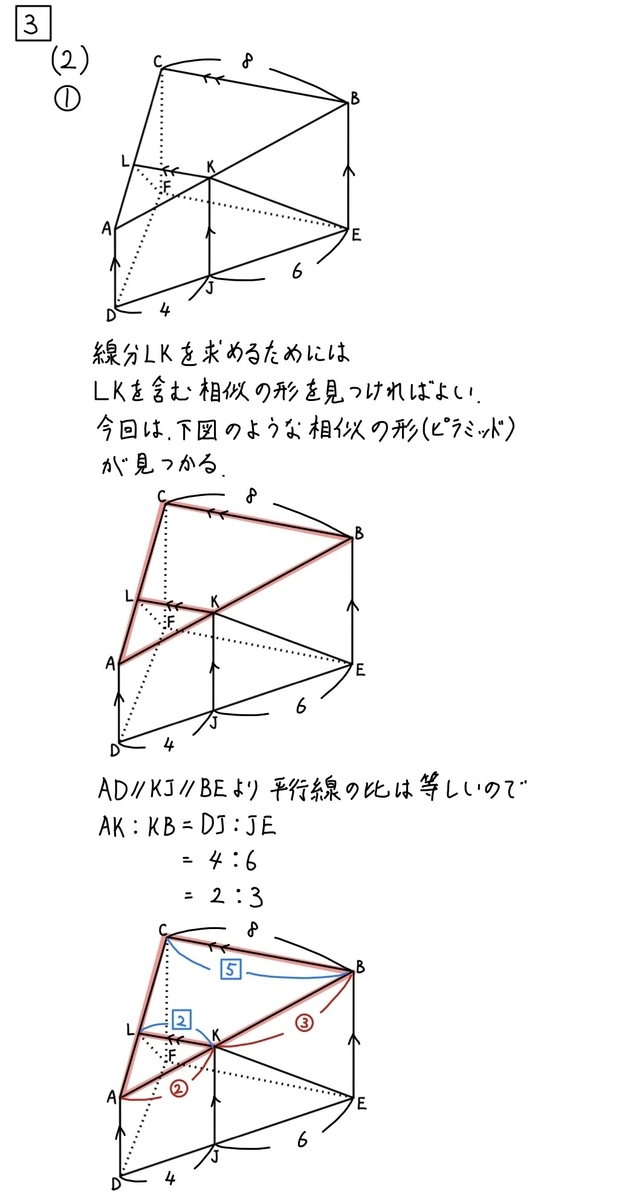 3
(2)
①
C
8
B
L
K
F
A
E
6
J
D
4
線分LKを求めるためには
LKを含む相似の形を見つければよい.
今回は.下図のような相似の形(ピラミッド)
が見つかる.
C
8
B
L
K
F
A
E
6
J
D
4
AD//KJ//BEより平行線の比は等しいので
AK:KB=DJ:JE
= 4:6
= 2:3
C
8
B
5
2
③
L
K
F
②
A
E
6
J
D
4